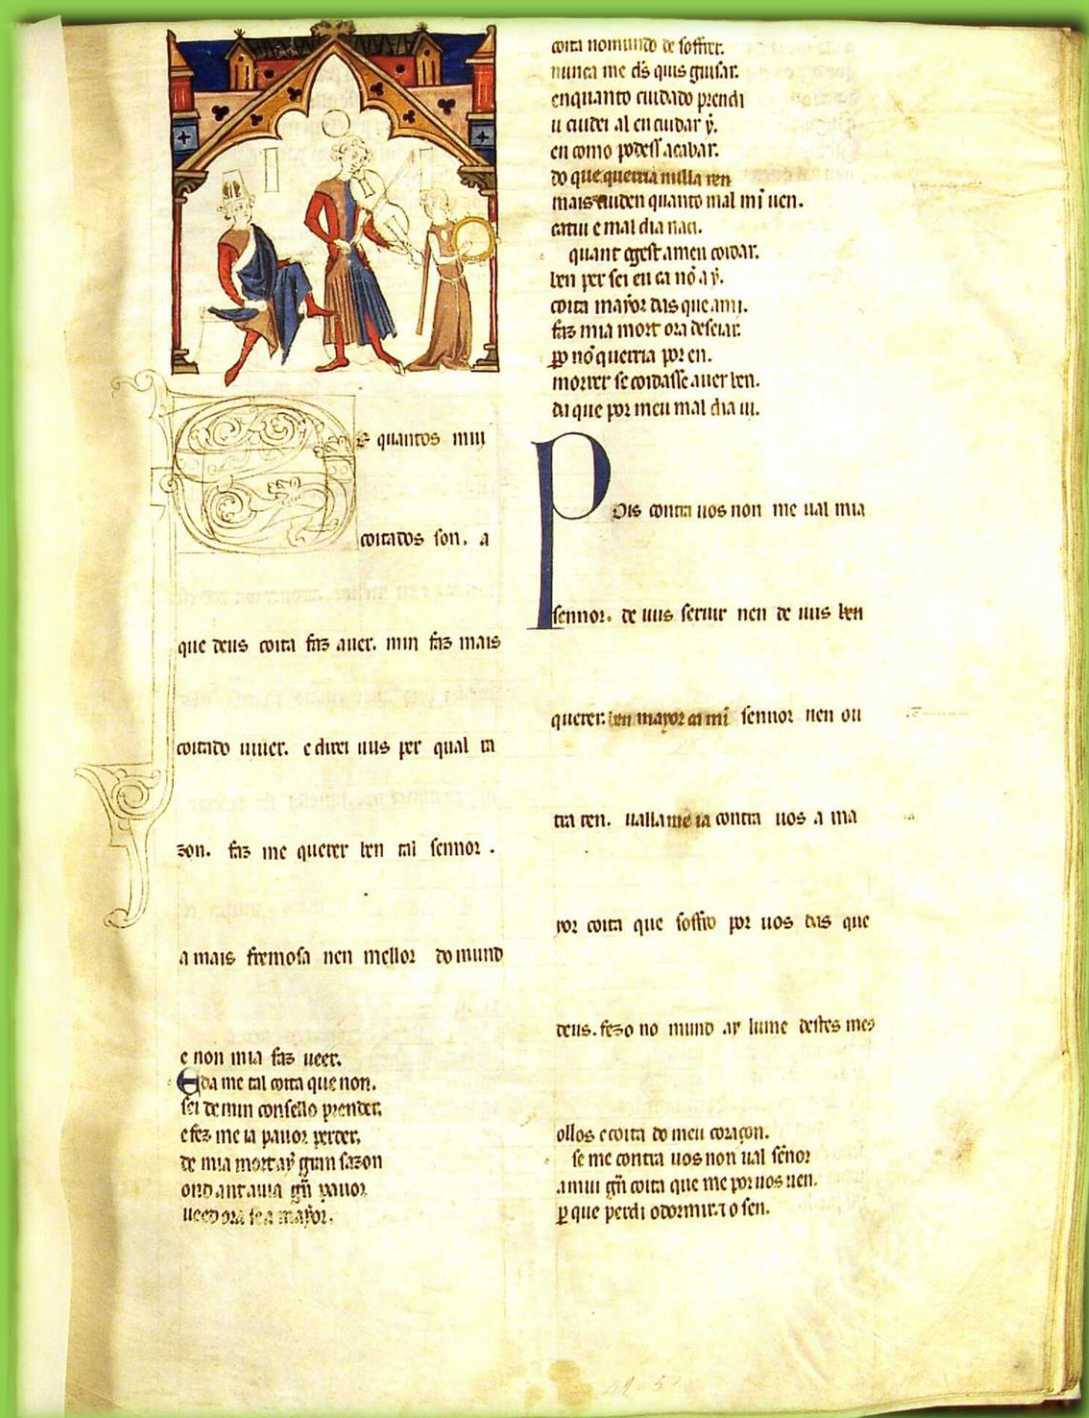 De quantos mui
coitados son. a
que deus coita faz auer. min faz mais
coitado uiuer. e direi uus per qual ra
zon. faz me querer ben tal sennor.
a mais fremosa nen mellor do mund
e non mia faz ueer.
E da me tal coita que non.
sei de min consello prender.
e fez me ia pauor perder.
de mia mort aỹ gran sazon
ond ant auia gñ pauor
ueed ora se a mayor.
coita no mundo de soffrer.
nunca me ds quis guisar.
enquanto cuidado prendi
u cuidei al en cuidar ẏ.
en como podess acabar.
do que querria nulla ren
mais auden quanto mal mi uen.
catiui e mal dia naci.
quant gest a meu coidar.
ben per sei en ca nõ a ẏ.
coita mayor das que am j.
faz mia mort ora deseiar.
ꝑo nõ querria por en.
morrer se coidasse auer ben.
da que por meu mal dia ui.
Pois contra uos non me ual mia
sennor. de uus seruir nen de uus ben
querer. ben mayor ca mi sennor nen ou
tra ren. ualla me ia contra uos a ma
yor coita que soffro por uos das que
deus. fezo no mund ay lume destes meos
ollos e coita do meu coraçon.
se me contra uos non ual señor
a mui gñ coita que me por uos uen.
ꝑ que perdi o dormir. ⁊ o sen.